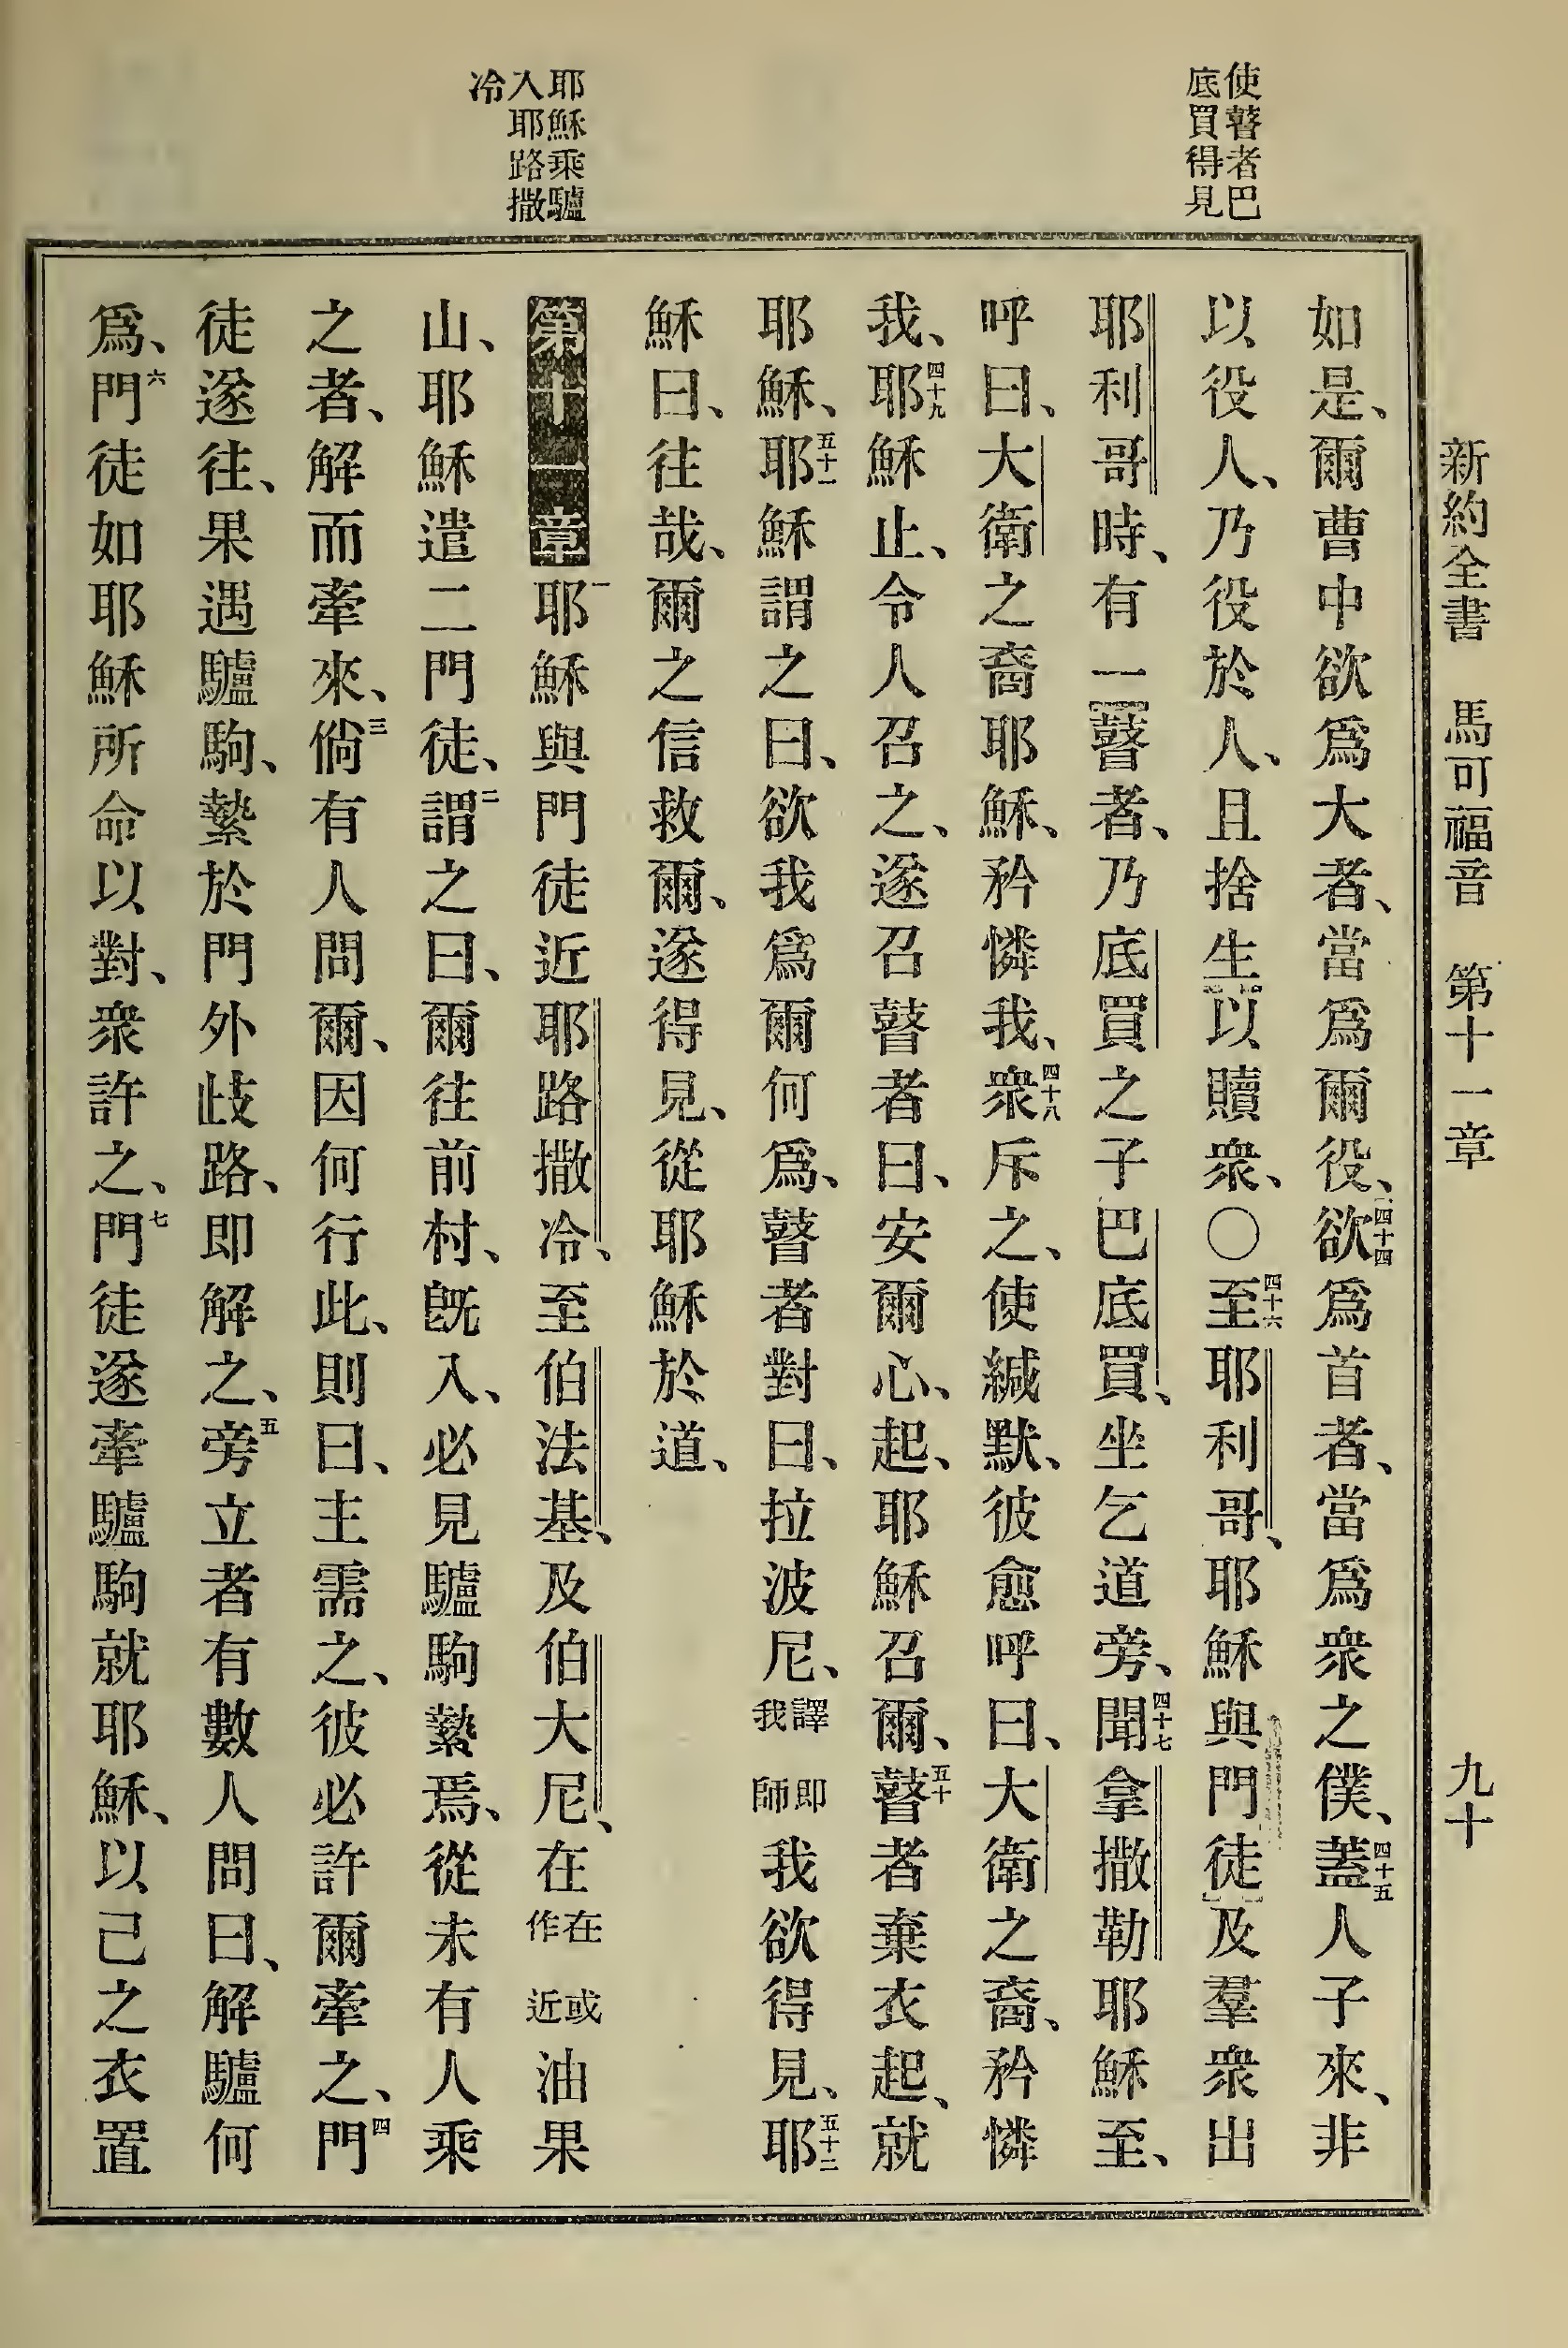 新約全書 馬可福音 第十一章 九十
使瞽者巴
底買得見
耶穌乘驢
入耶路撒
冷
如是、爾曹中欲爲大者、當爲爾役、四十四欲爲首者、當爲衆之僕、四十五蓋人子來、非
以役人、乃役於人、且捨生以贖衆、〇四十六至耶利哥、耶穌與門徒及羣衆出
耶利哥時、有一瞽者、乃底買之子巴底買、坐乞道旁、四十七聞拿撒勒耶穌至、
呼曰、大衛之裔耶穌、矜憐我、四十八衆斥之、使緘默、彼愈呼曰、大衛之裔、矜憐
我、四十九耶穌止、令人召之、遂召瞽者曰、安爾心、起、耶穌召爾、五十瞽者棄衣起、就
耶穌、五十一耶穌謂之曰、欲我爲爾何爲、瞽者對曰、拉波尼、譯即我師我欲得見、五十二耶
穌曰、往哉、爾之信救爾、遂得見、從耶穌於道、
第十一章 一耶穌與門徒近耶路撒冷、至伯法基、及伯大尼、在在或作近油果
山、耶穌遣二門徒、二謂之曰、爾往前村、旣入、必見驢駒縶焉、從未有人乘
之者、解而牽來、三倘有人問爾、因何行此、則曰、主需之、彼必許爾牽之、四門
徒遂往、果遇驢駒、縶於門外歧路、即解之、五旁立者有數人問曰、解驢何
爲、六門徒如耶穌所命以對、衆許之、七門徒遂牽驢駒就耶穌、以己之衣置